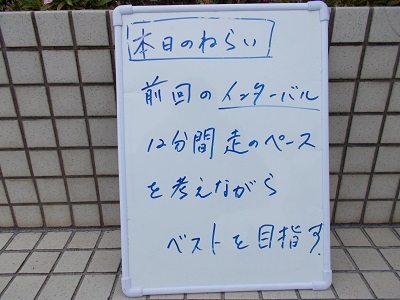 本日のねらい
前回のインターバル
12分間走のペース
を考えながら
ベストを目指す